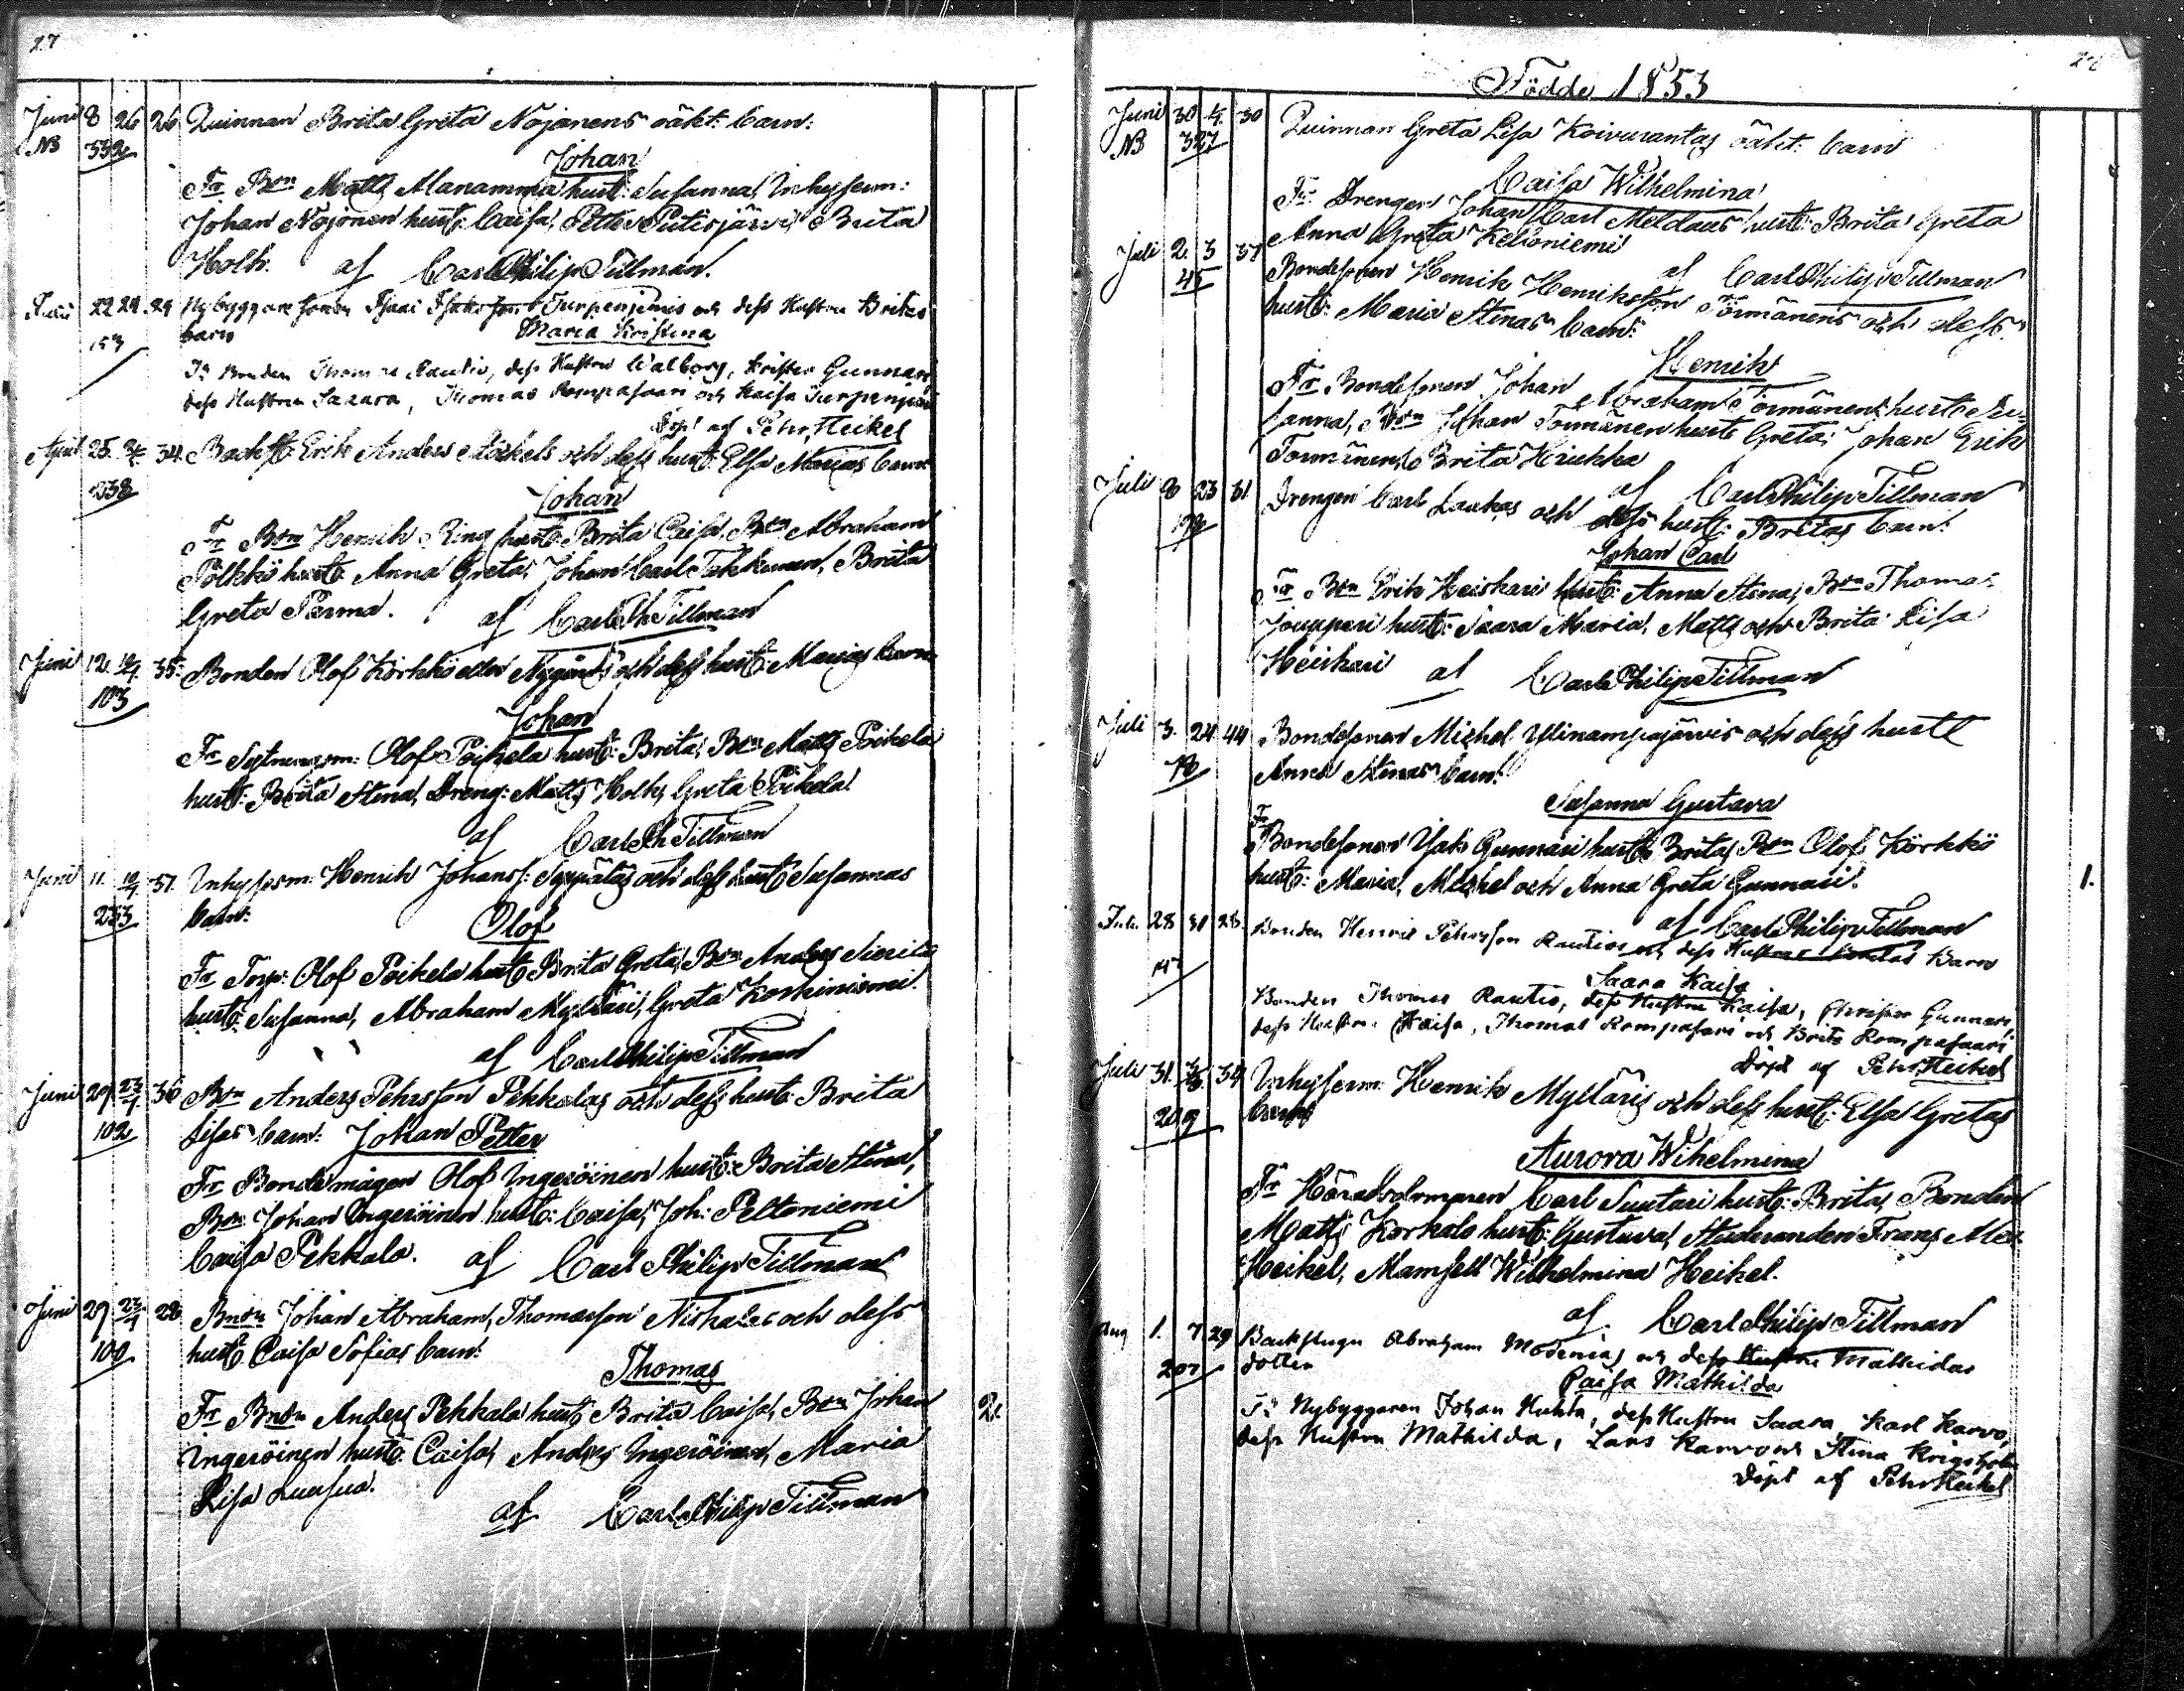 27
Juni 8 26 26 Quinnan Brita Greta Nöjänens oäkt: barn:
NB 332
Johan
Fr Bon Matts Alanammpa hust: Susanna, Inhysesm:
Johan Nöjonen hust: Caisa, Petter Putisjärvi Brita
Holk. af Carl Philip Tillman.
22 24 29 Nybyggare sonen och dess Hustru Britas
153 barn Maria Kristina
Fr Bonden Thomas Rautio, dess Hustru Walborg, Krister Gunnari
dess Hustru Saara, Thomas Rompasaari och Kaisa
Döpt af Pehr Heikel
April 25. 34. Erik Anders och dess hust: Elsa Marias barn
238
Johan
Fr Bon Henrik Ring hust: Brita Caisa, Bon Abraham
Pölkkö hust: Anna Greta, Johan Carl Takkunen, Brita
Greta Perma. af Carl Ph Tillman
Juni 12. 35. Bonden Olof Körkkö eller Nygårds och dess hust: Marias barn
103
Johan
Fr Olof Poikela hust: Brita, Bon Matts Poikela
hust: Brita Stina, Dreng: Matts Holk, Greta Poikela
af Carl Ph Tillman
Juni 11. 37. Inhysesm: Henrik Johanss: och dess hust: Susannas
233 barn: Olof
Fr Torp: Olof Poikela hust: Brita Greta, Bon Anders
hust: Susanna, Abraham Myllari, Greta Korkiniemi.
af Carl Philip Tillman
Juni 29 23/7 36 Bon Anders Pehrsson Pekkalas och dess hust: Brita
102 Lisas barn: Johan Petter
Fr Bondemågen Olof Ingeröinen hust: Brita Stina,
Bon Johan Ingeröinen hust: Caisa, Joh: Peltoniemi
Caisa Pekkala. af Carl Philip Tillman
Juni 29 23/7 28 Johan Abraham, Thomasson och dess
100 hust: Caisa Sofias barn:
Thomas
Fr Anders Pekkala hust: Brita Caisa, Bon Johan
Ingeröinen hust: Caisa, Anders Ingeröinen, Maria
Lisa Luusua.
af Carl Philip Tillman
2.
Födde 1853
Juni 30 4. 30 Quinnan Greta Lisa Koivurantas oäkt: barn
NB 327
Caisa Wilhelmina
Fr. Drengen Johan Carl Meldaus hust: Brita Greta
Anna Greta Keloniemi
af Carl Philip Tillman
Juli 2. 3 37 Bondesonen Henrik Henriksson Törmänens och dess
45 hust: Maria Stinas barn:
Henrik
Fr. Bondesonen Johan Abraham Törmänen hust: Su-
sanna, Bon Johan Törmänen hust: Greta, Johan Erik
Törmänen, Brita Hiukka
af Carl Philip Tillman
Juli 8 23 31 Drengen Carl Laukas och dess hust: Britas barn:
Johan Carl
Fr Bon Erik Heiskari hust: Anna Stina, Bon Thomas
Jouppori hust: Saara Maria, Matts och Brita Lisa
Heiskari af Carl Philip Tillman
Juli 3. 24 44 Bondesonen Michel Ylinampajärvis och dess hust:
78 Anna Stinas barn:
Susanna Gustava
Fr
Bondesonen Isak Gunnari hust: Brita, Bon Olof Körkkö
hust: Maria, Michel och Anna Greta Gunnari.
1.
af Carl Philip Tillman
28 31 28 Bonden Henric Pehrsson Rautios och dess Hustrus Barn
Saara Kaisa
Bonden Thomas Rautio, dess Hustru Kaisa, Christer Gunnari
dess Hustru Kaisa, Thomas Rompasari och Brita Rompasaari
Döpt af Pehr Heikel
Juli 31. 34 Inhysesm: Henrik Myllaris och dess hust: Elsa Gretas
209 barn
Aurora Wihelmina
Fr Häradsdomaren Carl Suutari hust: Brita, Bonden
Matts Korkalo hust: Gustava, Studeranden Frans
Heikel, Mamsell Wilhelmina Heikel.
af Carl Philip Tillman
Aug 1. 7 29 Abraham och dess Hustru Mathildas
207 dotter
Caisa Mathilda
Fr Nybyggaren Johan Kuhta, dess Hustru Saara, Karl Karvo,
dess Hustru Mathilda, Lars Karvo och Stina
Döpt af Pehr Heikel